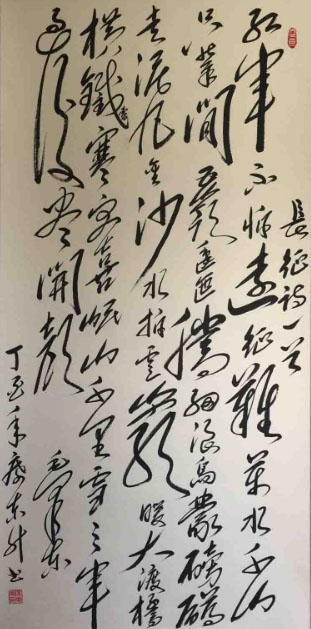 長征詩一首
紅軍不怕遠征難萬水千山
只等閒五嶺逶迤騰細浪烏蒙磅礴
走泥丸金沙水拍雲崖暖大渡橋
橫鐵索寒更喜岷山千里雪三軍
過後盡開顏
毛澤東
年東升書